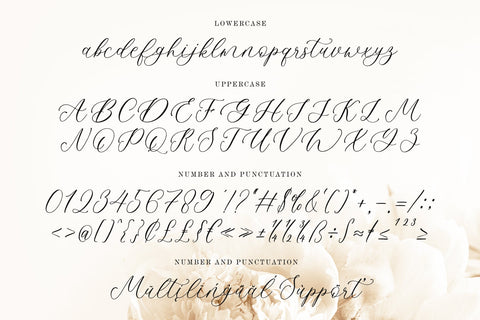 LOWERCASE
abcdefghijklmnopqrstuvwxyz
UPPERCASE
ABCDEFGHIJKLM
NOPQRSTUVWXYZ
NUMBER AND PUNCTUATION
0123456789 '!?"#$%&'()*+,-.=/:;
<>@[]^{}¢£€«»±¼½¾ß÷∫≈≠≤¹²³≥
NUMBER AND PUNCTUATION
Multilingual Support